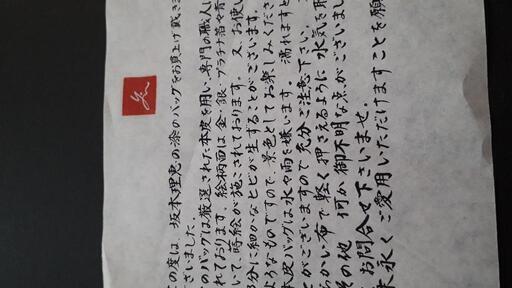 の度は、坂本理恵の漆のバッグをお買上げ戴き
ざいました。
のバッグは厳選された本皮を用い、専門の職人
れております。絵柄面は金・銀・プラチナ箔や青
いて、蒔絵が施こされております。又、お使い
部分に細かなヒビが生ずることがございます。
ようなものですので、景色としてお楽しみくださ
皮バッグは水や雨を嫌います。濡れますと
とがございますので充分ご注意下さい。
らかい布で軽く押さえるように水気を
その他 何か御不明な点がございまし
お問合せ下さいませ。
末永くご愛用いただけますことを願